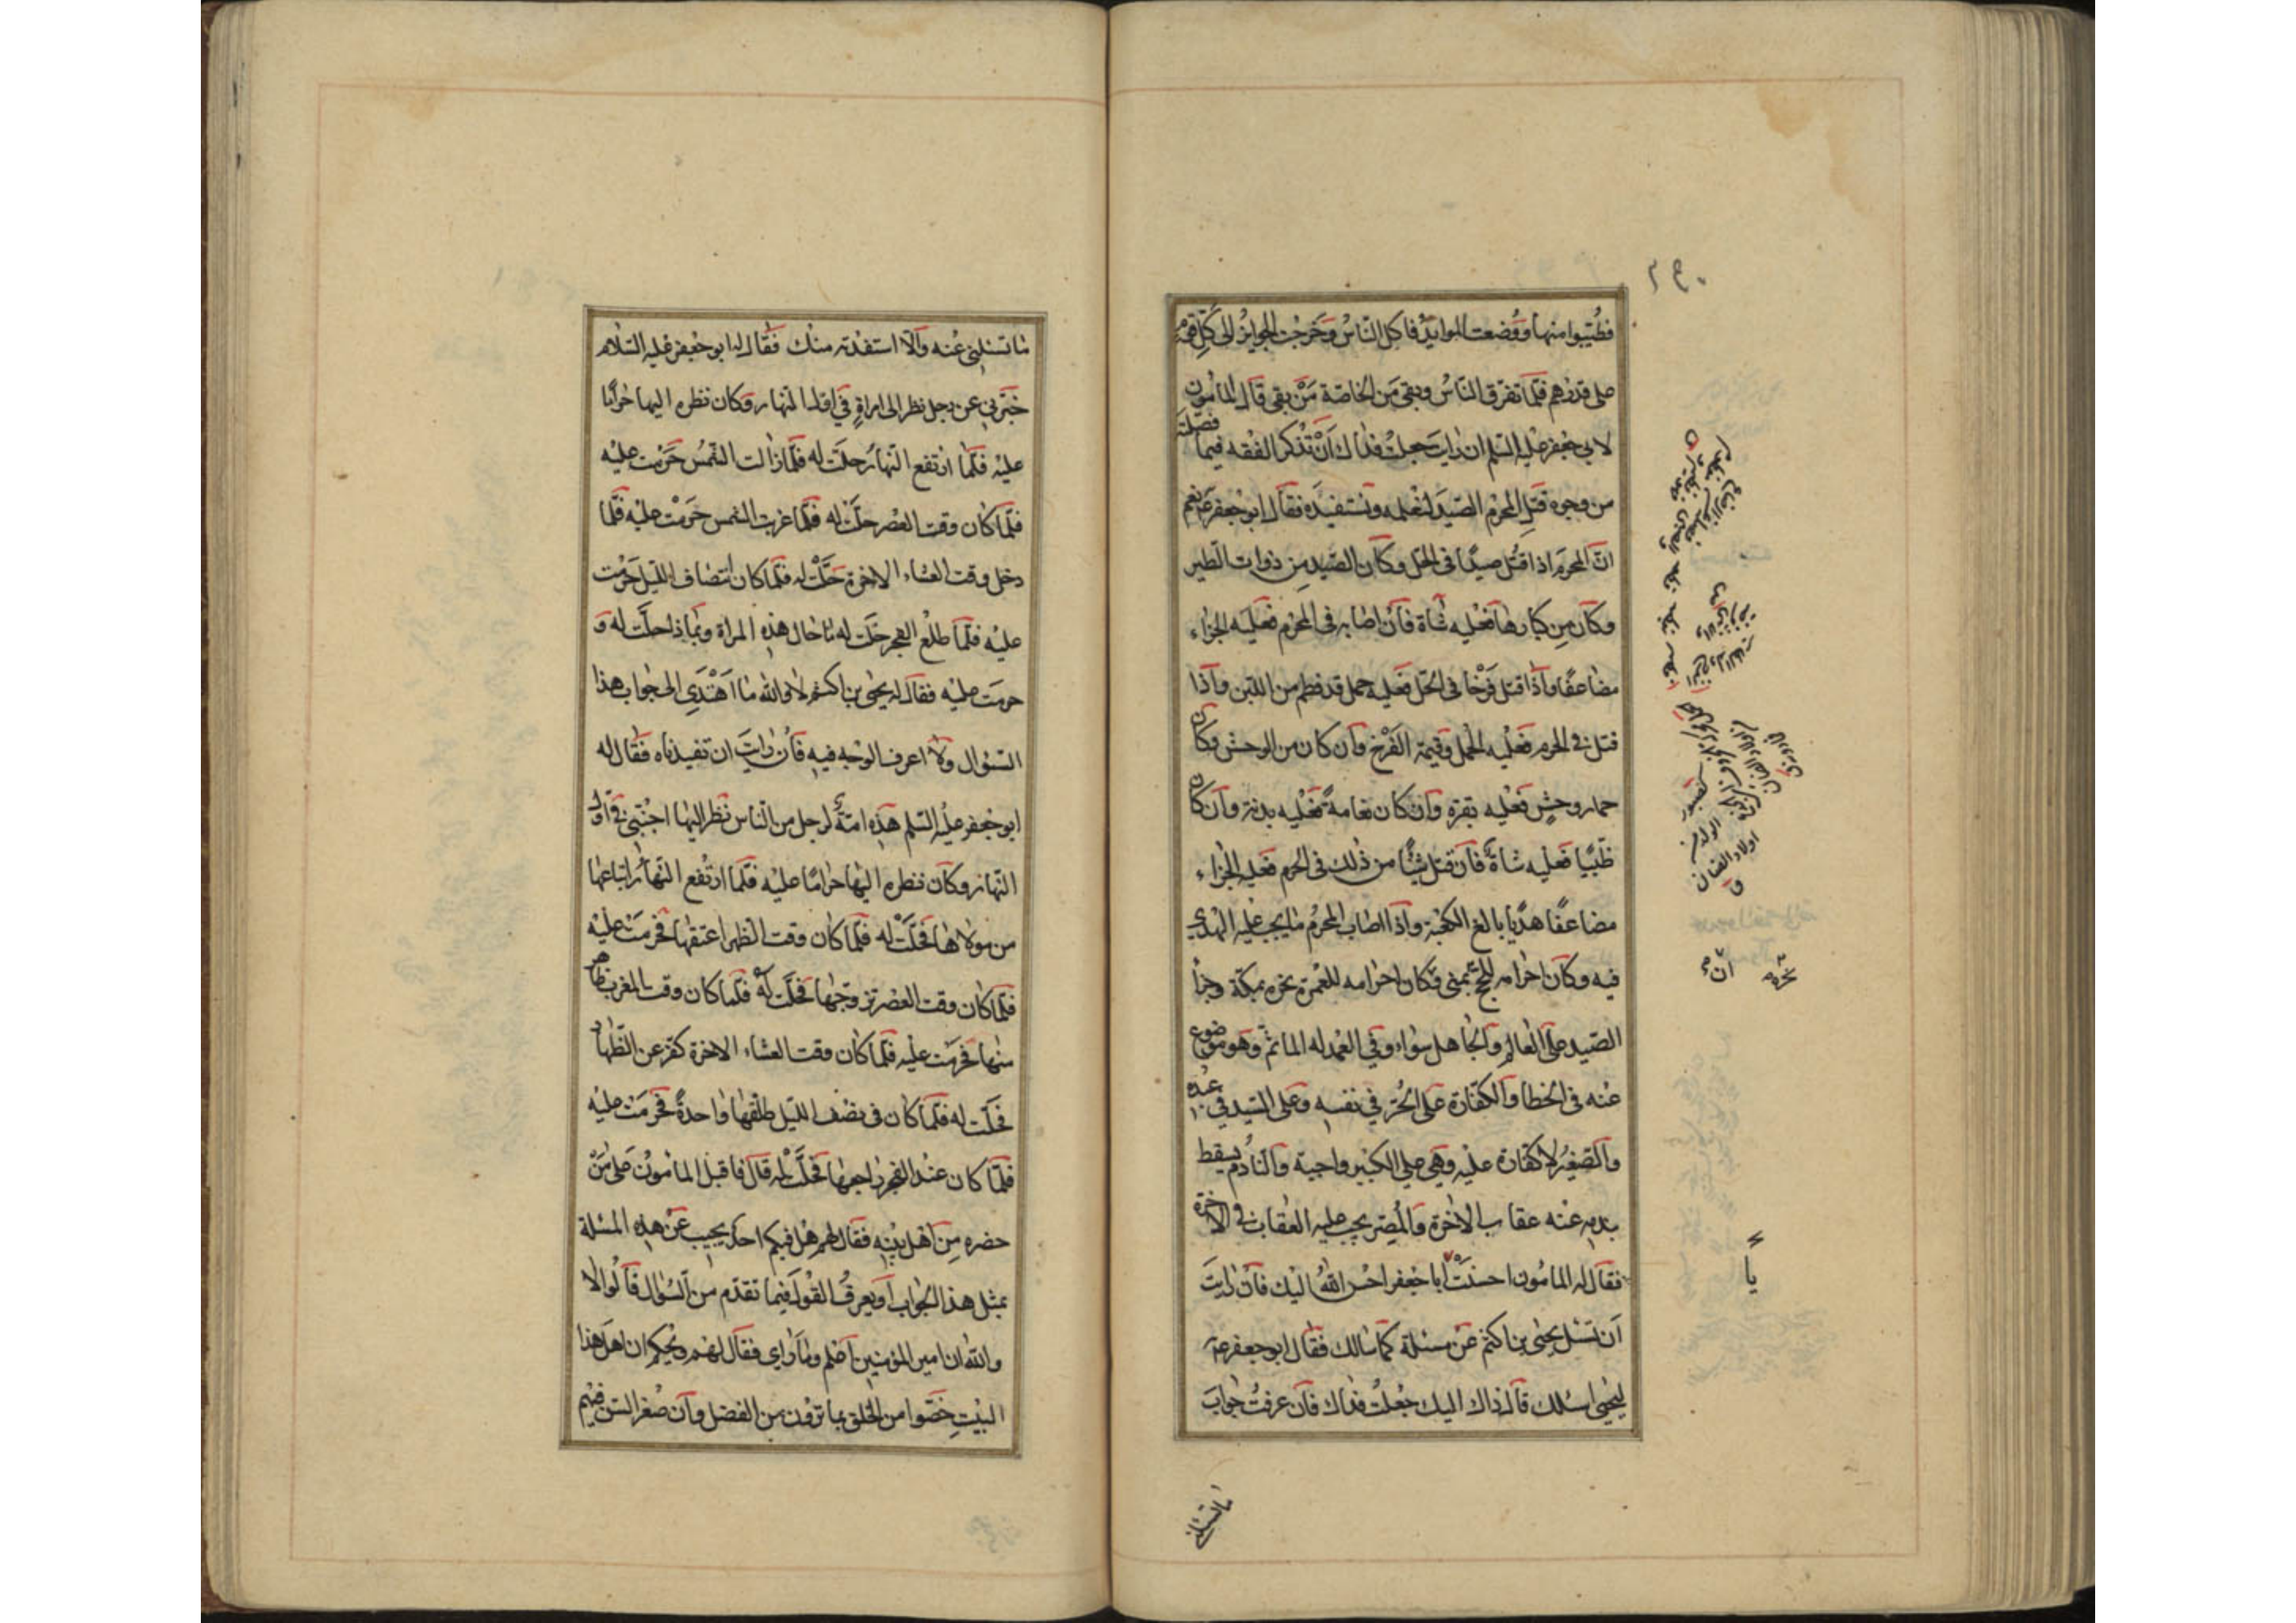 ٢٩٠
فطيبوا منها ووضعت الموايد فاكل الناس وخرجت الجوايز الى كل قوم
على قدرهم فلما تفرق الناس وبقى من الخاصة من بقى قال المأمون
لابي جعفر عليه السلم ان رايت جعلت فداك ان تذكر الفقه فيما فصلته
من وجوه قتل المحرم الصيد لنعلمه ونستفيده فقال ابو جعفر ع نعم
ان المحرم اذا قتل صيدا فى الحل وكان الصيد من ذوات الطير
وكان من كبارها فعليه شاة فان اصابه فى المحرم فعليه الجزاء
مضاعفا واذا قتل فرخا فى الحل فعليه حمل قد فطم من اللبن واذا
قتل فى الحرم فعليه الحمل وقيمة الفرخ وان كان من الوحش وكان
حمار وحش فعليه بقرة وان كان نعامة فعليه بدنة وان كان
ظبيا فعليه شاة فان قتل شيئا من ذلك فى الحرم فعليه الجزاء
مضاعفا هديا بالغ الكعبة واذا اصاب المحرم ما يجب عليه الهدي
فيه وكان احرامه للحج بمنى وكان احرامه للعمرة نحره بمكة وجزاء
الصيد على العالم والجاهل سواء وفي العمد له الماثم وهو موضوع
عنه فى الخطا والكفارة على الحر في نفسه وعلى السيد في عبده
والصغير لا كفارة عليه وهي على الكبير واجبة والنادم يسقط
بندمه عنه عقاب الاخرة والمصر يجب عليه العقاب فى الاخرة
فقال له المامون احسنت ابا جعفر احسن الله اليك فان رايت
ان تسئل يحيى بن اكثم عن مسئلة كما سالك فقال ابو جعفر ع
ليحيى اسئلك قال ذاك اليك جعلت فداك فان عرفت جواب
اولاد الضان
ان
نحره
يا
ما تسئلني
ما تسئلني عنه والا استفدته منك فقال له ابو جعفر عليه السلام
خبرني عن رجل نظر الى امراة في اول النهار وكان نظره اليها حراما
عليه فلما ارتفع النهار حلت له فلما زالت الشمس حرمت عليه
فلما كان وقت العصر حلت له فلما غربت الشمس حرمت عليه فلما
دخل وقت العشاء الاخرة حلت له فلما كان انتصاف الليل حرمت
عليه فلما طلع الفجر حلت له ما حال هذه المراة وبماذا حلت له و
حرمت عليه فقال له يحيى بن اكثم لا والله ما اهتدى الى جواب هذا
السؤال ولا اعرف الوجه فيه فان رايت ان تفيدناه فقال له
ابو جعفر عليه السلم هذه امة لرجل من الناس نظر اليها اجنبي في اول
النهار وكان نظره اليها حراما عليه فلما ارتفع النهار ابتاعها
من مولاها فحلت له فلما كان وقت الظهر اعتقها فحرمت عليه
فلما كان وقت العصر تزوجها فحلت له فلما كان وقت المغرب ظاهر
منها فحرمت عليه فلما كان وقت العشاء الاخرة كفر عن الظهار
فحلت له فلما كان فى نصف الليل طلقها واحدة فحرمت عليه
فلما كان عند الفجر راجعها فحلت له قال فاقبل المامون على من
حضره من اهل بيته فقال لهم هل فيكم احد يجيب عن هذه المسئلة
بمثل هذا الجواب او يعرف القول فيما تقدم من السؤال قالوا لا
والله ان امير المؤمنين اعلم وما راى فقال لهم ويحكم ان اهل هذا
البيت خصوا من الخلق بما ترون من الفضل وان صغر السن فيهم